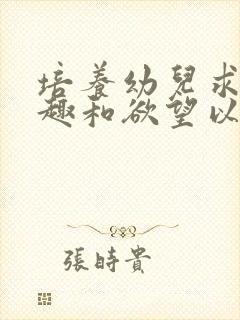 培養幼兒求
趣和欲望以
張時貴